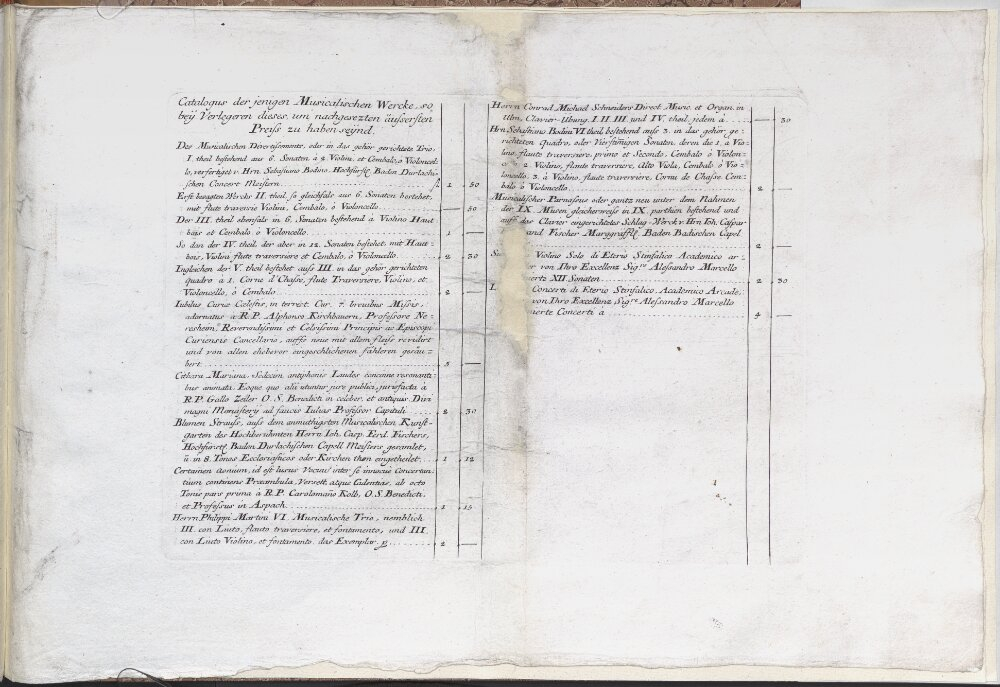 Catalogus der jenigen Musicalischen Wercke, so
beÿ Verlegeren dieses, um nachgesezten äussersten
Preiß zu haben seynd.
Des Musicalischen Divertissements, oder in das gehör gerichtete Trio,
I. theil bestehend aus 6. Sonaten à 2 Violini, et Cembalo, ò Violoncel=
lo, verfertiget v. Hrn. Sebastiano Bodino, Hochfürstl. Baden Durlachi=
schen Concert Meistern. fl. 1 50
Erst besagten Wercks II. theil, so gleichfals aus 6. Sonaten bestehet,
mit flute traversiè Violini, Cembalo, ò Violoncello. — 50
Der III. theil ebenfals in 6. Sonaten bestehend à Violino Haut
bois et Cembalo ò Violoncello. 1 —
So dan der IV. theil, der aber in 12. Sonaten bestehet, mit Haut=
bois, Violini flute traversiere et Cembalo, ò Violoncello. 2 30
Ingleichen der V. theil bestehet auss III. in das gehör gerichteten
quadro à 1. Corne d'Chasse, flute Traversiere, Violino, et
Violoncello, ò Cembalo. 2 —
Iubilus Curiæ Cœlestis, in terrest. Cur. 7. brevibus Missis,
adornatus à R.P. Alphonso Kirchbauern, Professore Ne=
resheim, Reverendissimi et Celsissimi Principis ac Episcopi
Curiensis Cancellario, auffs neue mit allem fleiss revidirt
und von allen ehebevor eingeschlichenen fähleren gesäu=
bert. 3 —
Cithara Mariana, Sedecim antiphonis Laudes concinne resonanti=
bus animata, Eoque quo alii utuntur jure publici, jurisfacta à
R.P. Gallo Zeiler O.S. Benedicti in celeber. et antiquis. Divi
magni Monastery ad fauces Iulias Professor Capituli. 2 30
Blumen Strauss, auss dem anmuthigsten Musicalischen Kunst=
garten des Hochberühmten Herrn Joh. Casp. Ferd. Fischers,
Hochfürstl. Baden Durlachischen Capell Meisters gesamlet,
u. in 8. Tonos Ecclesiasticos oder Kirchen thon eingetheilet. 1 12
Certamen Aonium, id est lusus Vocum inter se innocue Concertan=
tium continens Præambula, Versett, atque Cadentias, ab octo
Tonis pars prima à R.P. Carolomano Kolb, O.S. Benedicti,
et Professus in Aspach. 1 15
Herrn Philippi Martini VI. Musicalische Trio, nemblich
III. con Liuto, flauto traversiere, et fontamento, und III.
con Liuto Violino, et fontamento, das Exemplar p. 2 —
Herrn Conrad Michael Schneiders Direct. Music. et Organ. in
Ulm, Clavier-Übung I. II. III. und IV. theil, jedem à — 30
Hrn. Sebastiano Bodin VI theil, bestehend auss 3. in das gehör ge=
richteten Quadro, oder Vierstimigen Sonaten, deren die 1. à Vio=
lino, flaute traversiere, primo et Secondo, Cembalo ò Violon=
cello. 2. Violino, flaute traversiere, Alto Viola, Cembalo ò Vio=
loncello. 3. à Violino, flaute traversiere, Cornu de Chasse Cem=
balo ò Violoncello. 2 —
Musicalischer Parnassus oder gantz neu unter dem Nahmen
der IX. Musen gleicherweiss in IX. parthien bestehend und
auff das Clavier eingerichtetes Schlag-Werck v. Hrn. Joh. Caspar
and Fischer Marggräffl. Baden Badischen Capel
2 —
Violino Solo di Eterio Stinfalico Academico ar=
er von Ihro Excellenz Sig.re Alessandro Marcello
erte XII. Sonaten. 2 30
Concerti di Eterio Stinfalico, Academico Arcade,
von Ihro Excellenz Sig.re Alessandro Marcello
erte Concerti à 4 —